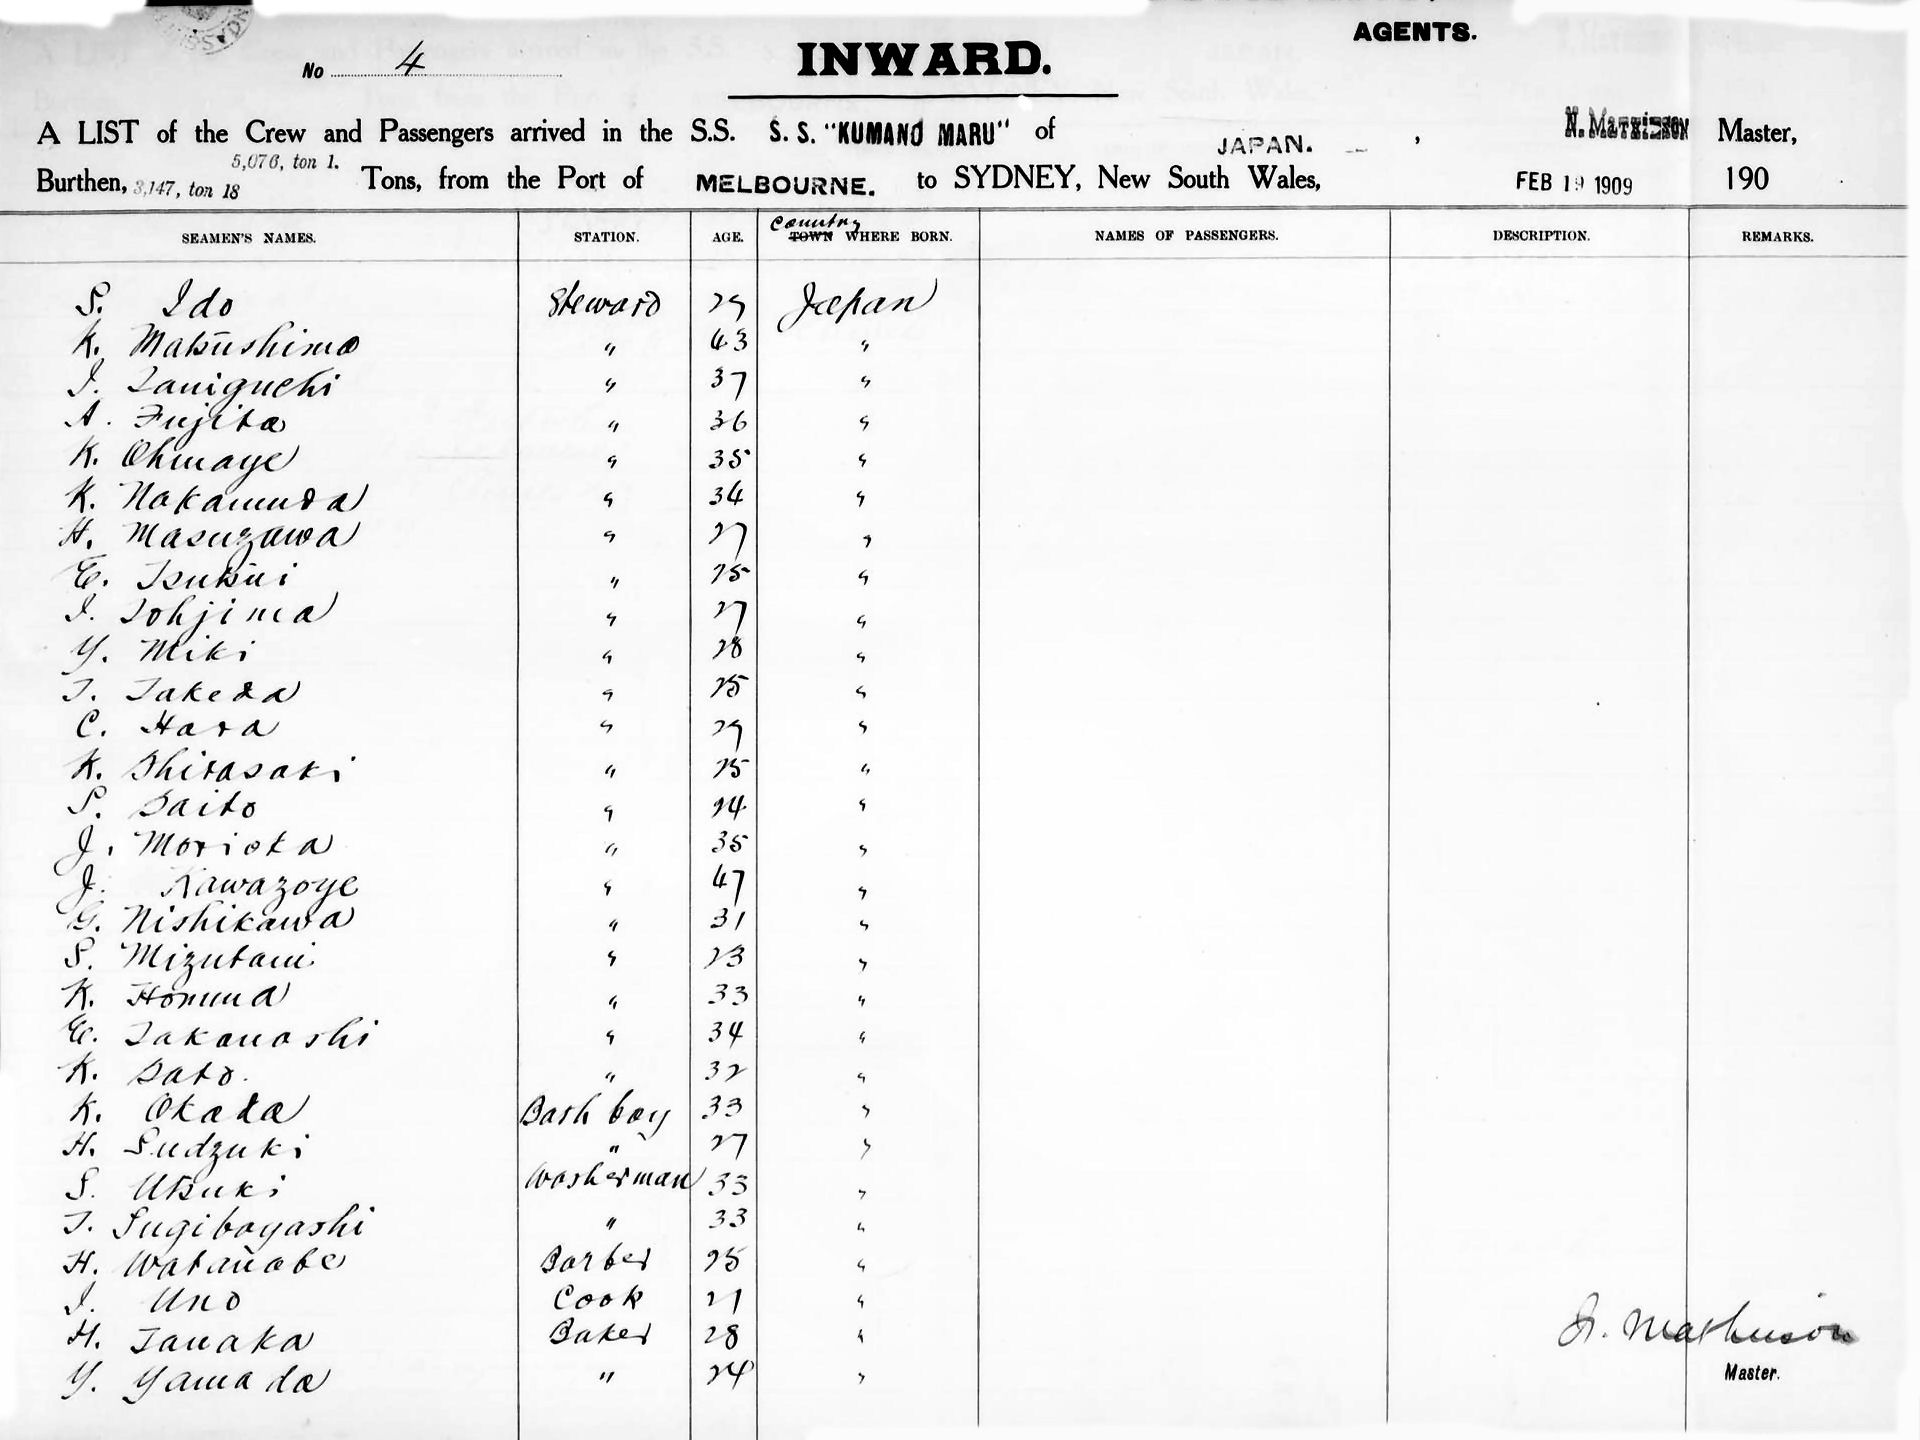 AGENTS.
No 4
INWARD.
A LIST of the Crew and Passengers arrived in the S.S. S. S. "KUMANO MARU" of JAPAN. , Master,
5,076, ton 1.
Burthen, 3,147, ton 18 Tons, from the Port of MELBOURNE. to SYDNEY, New South Wales, FEB 19 1909 190
Country
SEAMEN'S NAMES. STATION. AGE. TOWN WHERE BORN. NAMES OF PASSENGERS. DESCRIPTION. REMARKS.
S. Ido Steward 29 Japan
K. Matsushima " 43 "
I. Taniguchi " 37 "
A. Fujita " 36 "
K. Ohmaye " 35 "
K. Nakamura " 34 "
H. Masuzawa " 27 "
E. Tsutsui " 25 "
I. Tohjima " 27 "
Y. Miki " 28 "
T. Takeda " 25 "
C. Hara " 29 "
K. Shirasaki " 25 "
S. Saito " 24 "
J. Morioka " 35 "
J. Kawazoye " 47 "
G. Nishikawa " 31 "
S. Mizutani " 23 "
K. Honma " 33 "
E. Takanashi " 34 "
K. Sato. " 32 "
K. Okada Bath boy 33 "
H. Sudzuki " 27 "
S. Utsuki Washerman 33 "
T. Sugibayashi " 33 "
H. Watanabe Barber 25 "
I. Uno Cook 21 "
H. Tanaka Baker 28 "
Y. Yamada " 24 "
N. Mathieson
Master.